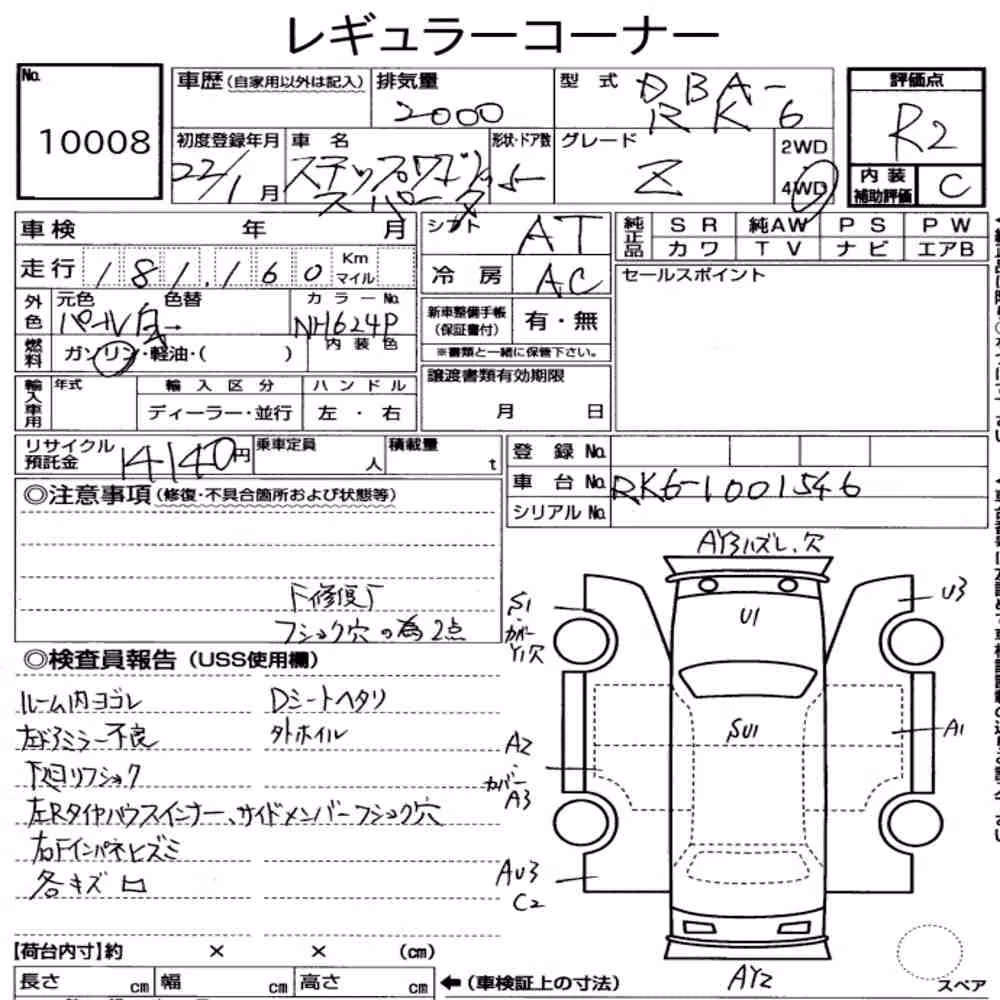 レギュラーコーナー
No.
10008
車歴 (自家用以外は記入)
排気量
2000
型 式
DBA-
RK6
評価点
R2
初度登録年月
22/1月
車 名
ステップワゴン
スパーダ
形状・ドア数
5
グレード
Z
2WD
4WD
内 装
補助評価
C
車検 年 月
シフト
AT
純正品
SR 純AW PS PW
カワ TV ナビ エアB
走行 181,160 Km マイル
冷 房
AC
セールスポイント
外色
元色 色替
パール白→
カラーNo.
NH624P
新車整備手帳
(保証書付)
有・無
※書類と一緒に保管下さい。
燃料
ガソリン・軽油・( )
内 装 色
輸入車用
年式
輸 入 区 分
ハ ン ド ル
ディーラー・並行
左 ・ 右
譲渡書類有効期限
月 日
リサイクル
預託金
14140円
乗車定員
人
積載量
t
登 録 No.
車 台 No. RK6-1001546
シリアル No.
◎注意事項 (修復・不具合箇所および状態等)
F修復F
フショク穴の為2点
◎検査員報告 (USS使用欄)
ルーム内ヨゴレ
Dシートヘタリ
左ドアミラー不良
外ホイル
下廻リフショク
左Rタイヤハウスインナー、サイドメンバーフショク穴
右Fインパネヒズミ
各キズ凹
AY3ハズレ、穴
S1
カバー
Y1穴
U1
U3
SU1
A1
A2
カバー
A3
AU3
C2
AY2
スペア
【荷台内寸】約 × × (cm)
長さ cm 幅 cm 高さ cm ←(車検証上の寸法)